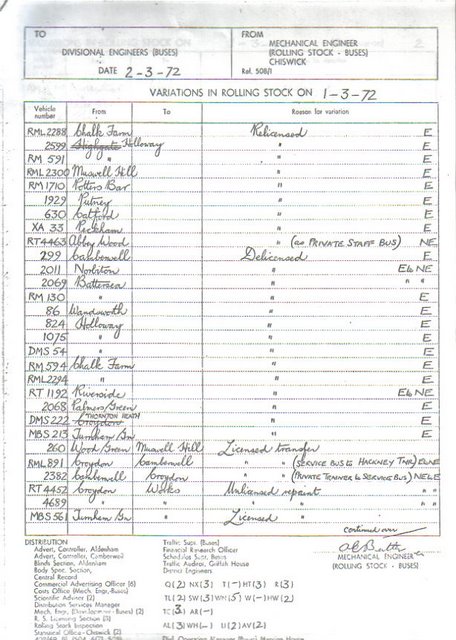 TO
DIVISIONAL ENGINEERS (BUSES)
DATE 2-3-72
FROM
MECHANICAL ENGINEER
(ROLLING STOCK - BUSES)
CHISWICK
Ref. 508/1
VARIATIONS IN ROLLING STOCK ON 1-3-72
Vehicle number From To Reason for variation
RML2288 Chalk Farm Relicensed E
2599 Highgate Holloway " E
RM 591 " " E
RML2300 Muswell Hill " E
RM1710 Potters Bar " E
1929 Putney " E
630 Catford " E
XA 33 Peckham " E
RT4463 Abbey Wood " (as PRIVATE STAFF BUS) NE
299 Camberwell Delicensed E
2011 Norbiton " E to NE
2069 Battersea " " "
RM 130 " " E
86 Wandsworth " E
824 Holloway " E
1075 " " E
DMS 54 " " E
RM 594 Chalk Farm " E
RML2294 " " E
RT 1192 Riverside " E to NE
2068 Palmers Green " E
DMS222 Croydon THORNTON HEATH " E
MBS 213 Turnham Gn " E
260 Wood Green Muswell Hill Licensed transfer E
RML891 Croydon Camberwell " " (SERVICE BUS to HACKNEY TNR) E to NE
2382 Camberwell Croydon " " (PRIVATE TRAINER to SERVICE BUS) NE to E
RT 4452 Croydon Works Unlicensed repaint " "
4689 " " " " " "
MBS 561 Turnham Gn " Licensed " E
continued over
DISTRIBUTION
Advert. Controller, Aldenham
Advert. Controller, Camberwell
Blinds Section, Aldenham
Body Spec. Section,
Central Record
Commercial Advertising Officer (6)
Costs Office (Mech. Engr.-Buses)
Scientific Adviser (2)
Distribution Services Manager
Mech. Engr. (Development - Buses) (2)
R. S. Licensing Section (3)
Rolling Stock Inspection
Statistical Office - Chiswick (2)
Traffic Supt. (Buses)
Financial Research Officer
Schedules Supt. Buses
Traffic Audits, Griffith House
District Engineers
Q(2) NX(3) T(-) HT(3) R(3)
TL(2) SW(3) WN(5) W(-) HW(2)
TC(3) AR(-)
AL(3) WH(-) U(2) AV(2)
MECHANICAL ENGINEER
(ROLLING STOCK - BUSES)